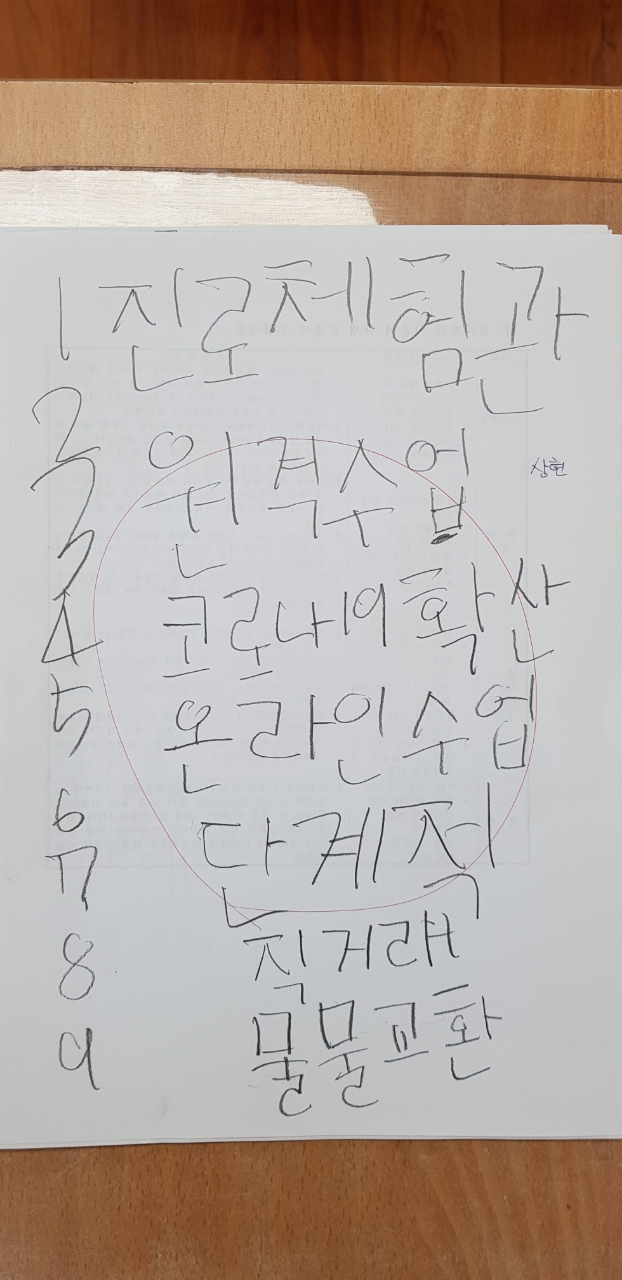 1 진로체험관
2 원격수업
상현
3
4 코로나19 확산
5 온라인수업
6 단계적
7
8 직거래
9 물물교환